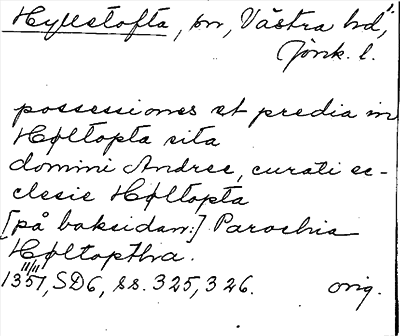 Hyllstofta, sn, Västra hd,
Jönk. l.
possessiones et predia in
Høltopta sita
domini Andree, curati ec-
clesie Høltopta
[på baksidan:] Parochia
Høltopthra.
1351 11/11, SD6, ss. 325, 326. orig.